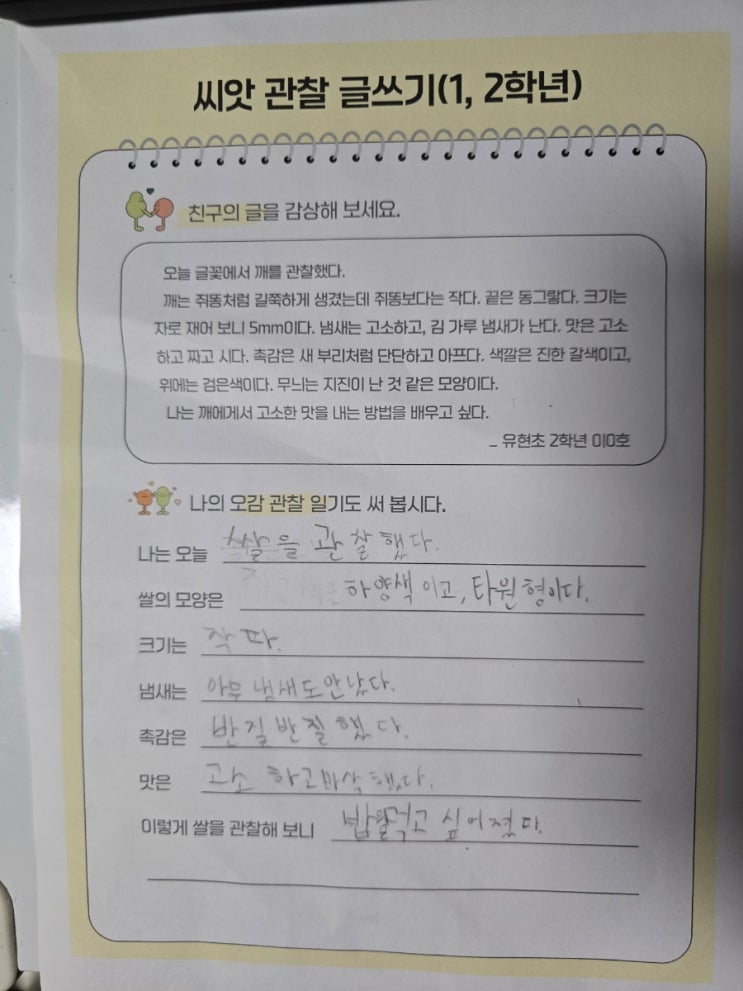 씨앗 관찰 글쓰기(1, 2학년)
친구의 글을 감상해 보세요.
오늘 글꽃에서 깨를 관찰했다.
깨는 쥐똥처럼 길쭉하게 생겼는데 쥐똥보다는 작다. 끝은 동그랗다. 크기는
자로 재어 보니 5mm이다. 냄새는 고소하고, 김 가루 냄새가 난다. 맛은 고소
하고 짜고 시다. 촉감은 새 부리처럼 단단하고 아프다. 색깔은 진한 갈색이고,
위에는 검은색이다. 무늬는 지진이 난 것 같은 모양이다.
나는 깨에게서 고소한 맛을 내는 방법을 배우고 싶다.
_ 유현초 2학년 이0호
나의 오감 관찰 일기도 써 봅시다.
나는 오늘 쌀을 관찰했다.
쌀의 모양은 하양색이고, 타원형이다.
크기는 작다.
냄새는 아무 냄새도안났다.
촉감은 반질반질했다.
맛은 고소하고바삭했다.
이렇게 쌀을 관찰해 보니 밥을먹고 싶어졌다.